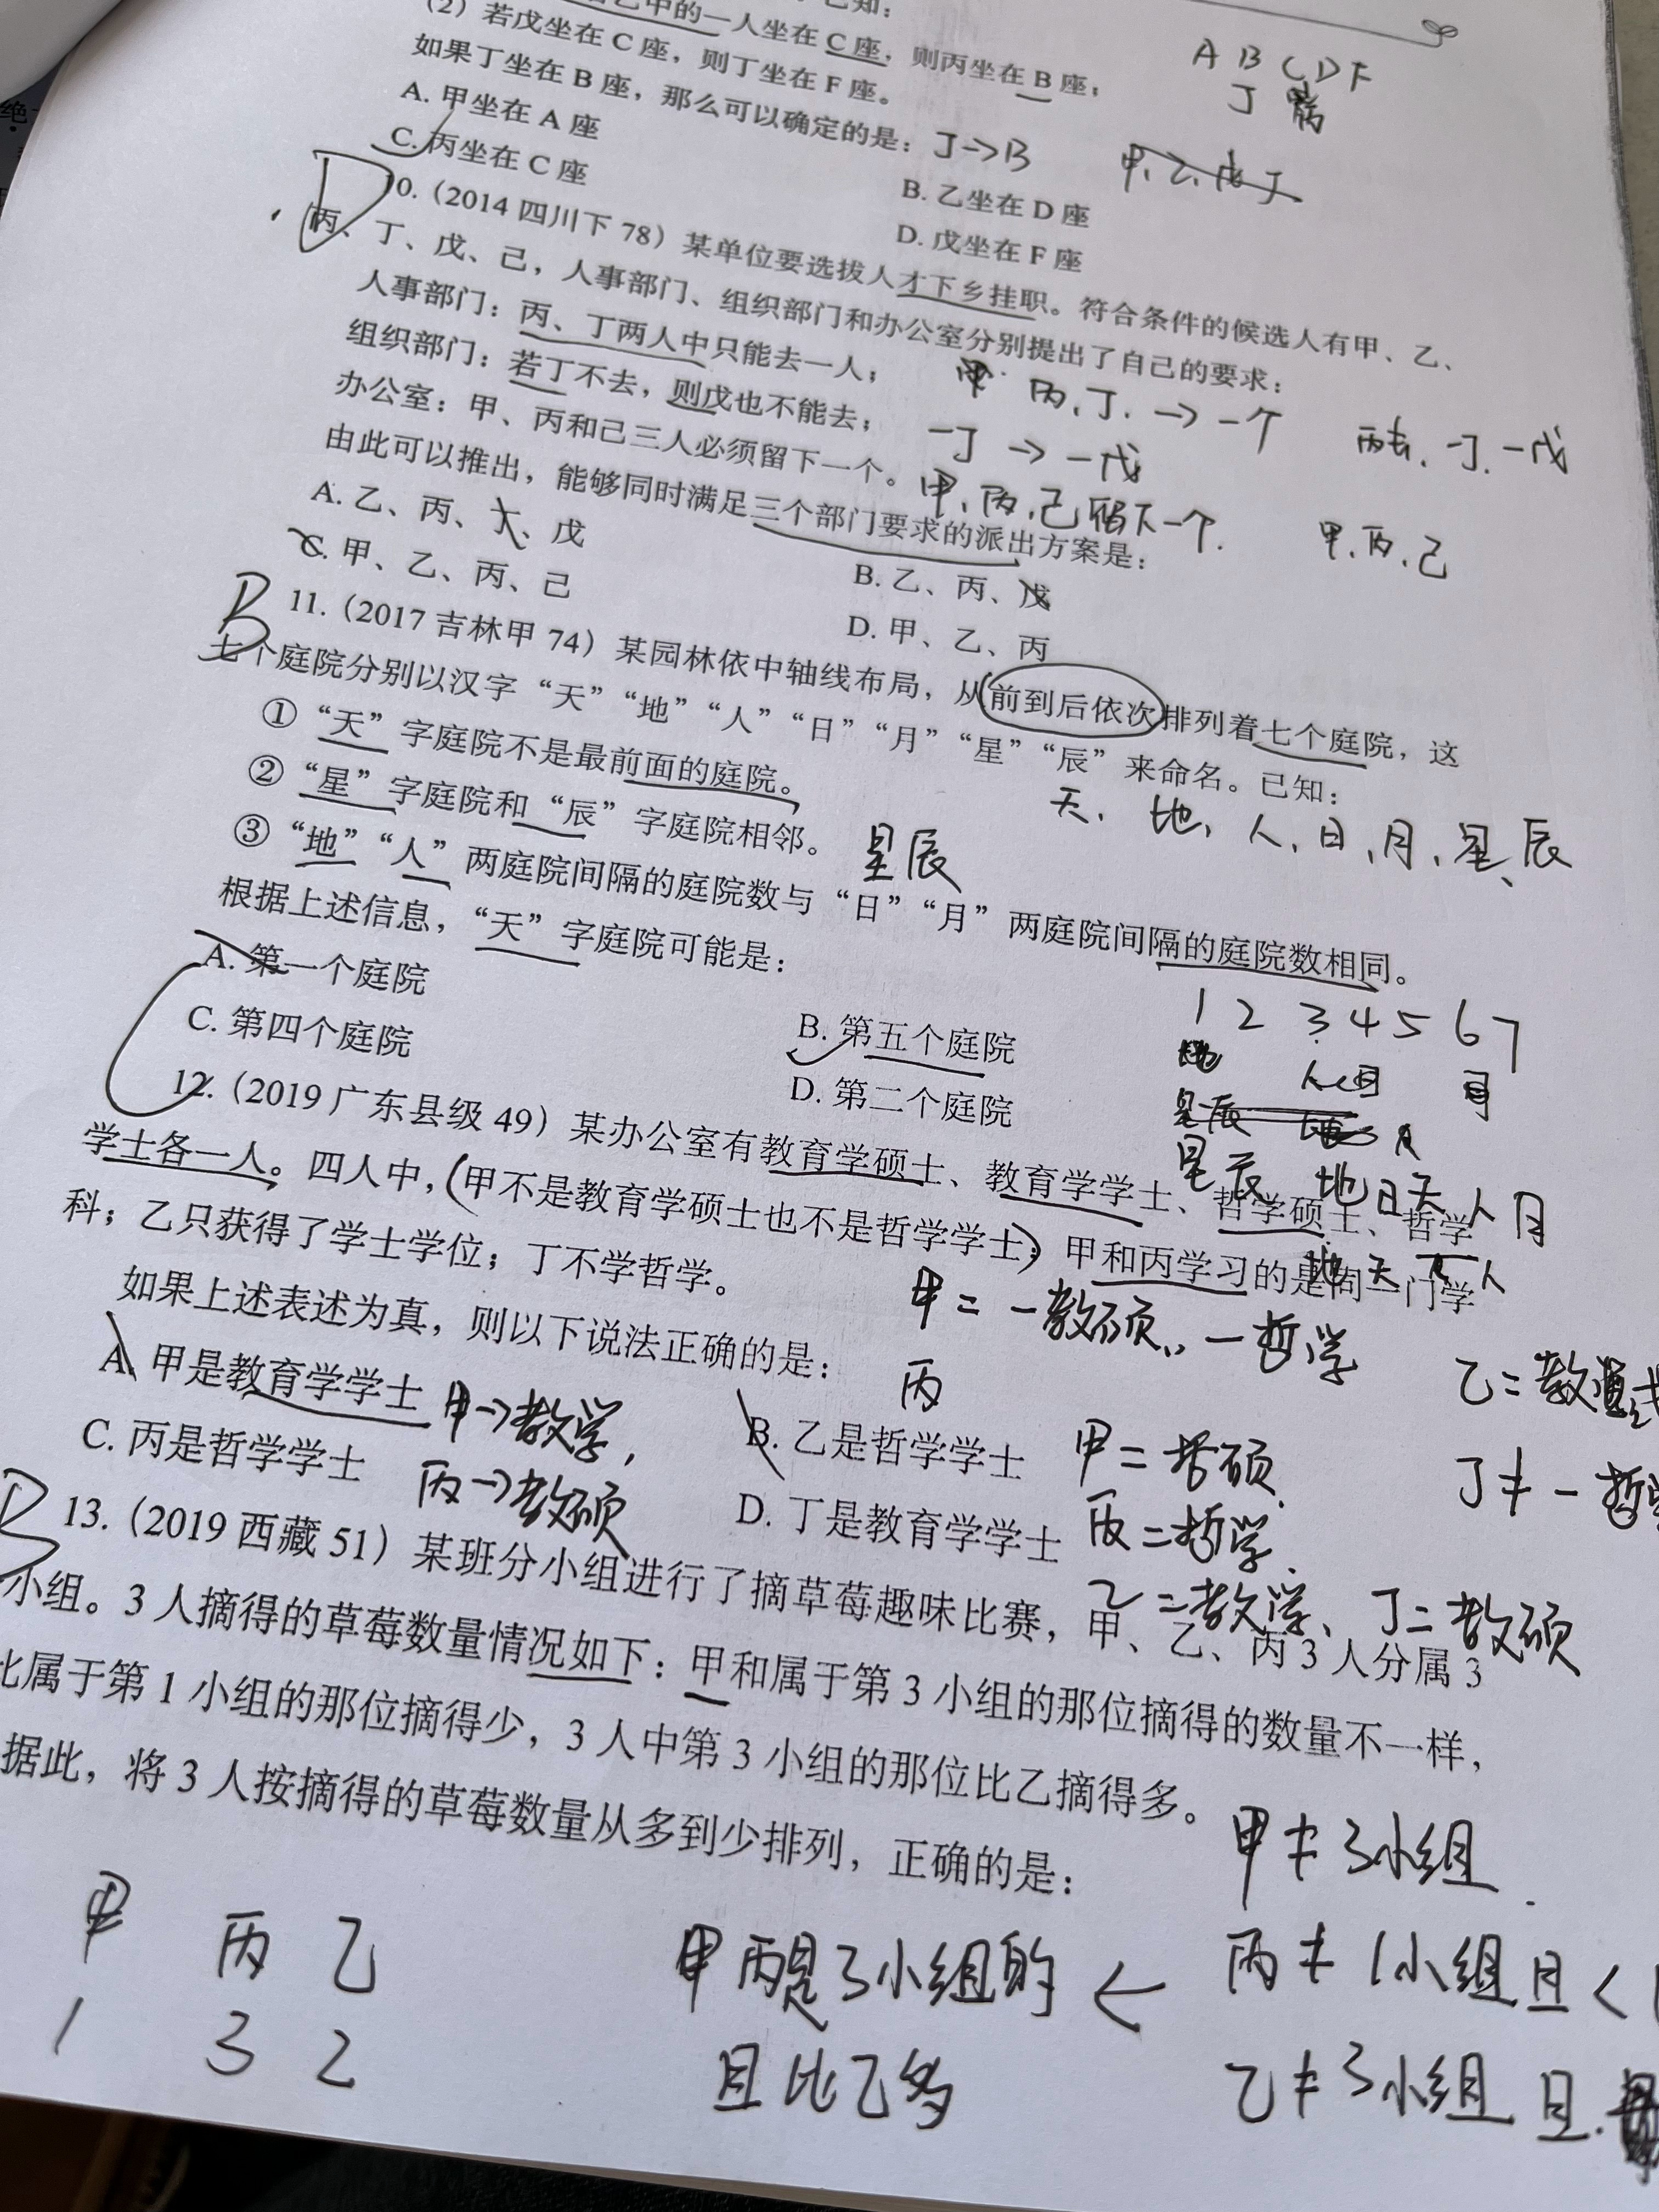 乙中的一人坐在 C 座，则丙坐在 B 座；
（2）若戊坐在 C 座，则丁坐在 F 座。
如果丁坐在 B 座，那么可以确定的是：
A. 甲坐在 A 座
B. 乙坐在 D 座
C. 丙坐在 C 座
D. 戊坐在 F 座
A B C D F
丁
丁→B
甲、乙、戊丁
D
10.（2014 四川下 78）某单位要选拔人才下乡挂职。符合条件的候选人有甲、乙、
丙、丁、戊、己，人事部门、组织部门和办公室分别提出了自己的要求：
人事部门：丙、丁两人中只能去一人；
组织部门：若丁不去，则戊也不能去；
办公室：甲、丙和己三人必须留下一个。
由此可以推出，能够同时满足三个部门要求的派出方案是：
A. 乙、丙、丁、戊
B. 乙、丙、戊
C. 甲、乙、丙、己
D. 甲、乙、丙
丙、丁. → 一个
一丁 → 一戊
丙去、一丁. 一戊
甲、丙、己留下一个.
甲、丙、己
B
11.（2017 吉林甲 74）某园林依中轴线布局，从前到后依次排列着七个庭院，这
七个庭院分别以汉字“天”“地”“人”“日”“月”“星”“辰”来命名。已知：
①“天”字庭院不是最前面的庭院。
②“星”字庭院和“辰”字庭院相邻。
③“地”“人”两庭院间隔的庭院数与“日”“月”两庭院间隔的庭院数相同。
根据上述信息，“天”字庭院可能是：
A. 第一个庭院
B. 第五个庭院
C. 第四个庭院
D. 第二个庭院
天、地、人、日、月、星、辰
星辰
1 2 3 4 5 6 7
星辰 地日天人月
12.（2019 广东县级 49）某办公室有教育学硕士、教育学学士、哲学硕士、哲学
学士各一人。四人中，甲不是教育学硕士也不是哲学学士；甲和丙学习的是同一门学
科；乙只获得了学士学位；丁不学哲学。
如果上述表述为真，则以下说法正确的是：
A. 甲是教育学学士
B. 乙是哲学学士
C. 丙是哲学学士
D. 丁是教育学学士
甲＝一教硕、一哲学
丙
甲→教学，
丙→教硕
甲＝哲硕.
丙＝哲学.
乙＝教学、丁＝教硕
13.（2019 西藏 51）某班分小组进行了摘草莓趣味比赛，甲、乙、丙 3 人分属 3
小组。3 人摘得的草莓数量情况如下：甲和属于第 3 小组的那位摘得的数量不一样，
比属于第 1 小组的那位摘得少，3 人中第 3 小组的那位比乙摘得多。
据此，将 3 人按摘得的草莓数量从多到少排列，正确的是：
甲≠3小组.
丙≠1小组且<
乙≠3小组且
甲丙是3小组的 ←
且比乙多
甲 丙 乙
1 3 2